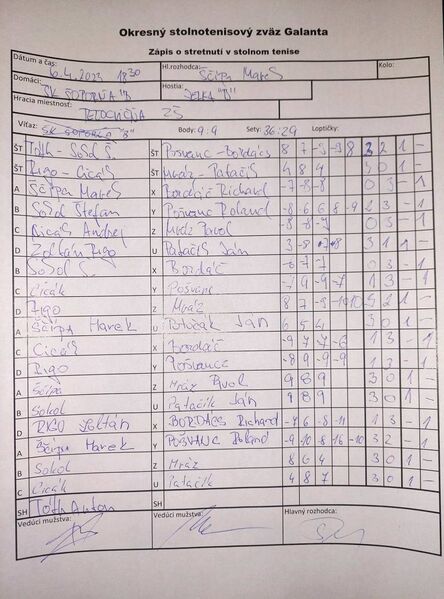 Okresný stolnotenisový zväz Galanta
Zápis o stretnutí v stolnom tenise
Dátum a čas: 6.4.2023 18 30 Hl.rozhodca: Ščipa Marek Kolo:
Domáci: ŠK SOPORŇA "B" Hostia: JELKA "D"
Hracia miestnosť: TELOCVIČŇA ZŠ
Víťaz: ŠK SOPORŇA "B" Body: 9:9 Sety: 36:29 Loptičky:
ŠT Tóth - Sokol Š. ŠT Pošvanc - Bordács 8 7 -3 -9 8 3 2 1 -
ŠT Rigo - Cicák ŠT Mráz - Patačik 4 8 4 3 0 1 -
A Ščipa Marek X Bordáč Richard -7 -8 -8 0 3 - 1
B Sokol Štefan Y Pošvanc Roland
C Cicák Andrej Z Mráz Pavol 0 3 - 1
D Zoltán Rigo U Patačik Ján 3 1 1 -
B Sokol Š. X Bordáč 0 3 - 1
C Cicák Y Pošvanc 1 3 - 1
D Rigo Z Mráz
A Ščipa Marek U Patačik Ján 6 5 4 3 0 1 -
C Cicák X Bordáč -9 7 -7 -6 1 3 - 1
D Rigo Y Pošvanc -8 9 -9 -9 1 3 - 1
A Ščipa Z Mráz Pavol 9 8 9 3 0 1 -
B Sokol U Patačik Ján 9 8 9 3 0 1 -
D RIGO Zoltán X BORDÁCS Richard -7 6 -8 -11 1 3 - 1
A Ščipa Marek Y POŠVANC Roland -9 -10 8 16 10 3 2 1 -
B Sokol Z Mráz 8 6 4 3 0 1 -
C Cicák U Patačik 4 8 7 3 0 1 -
SH Tóth Anton SH
Vedúci mužstva: Vedúci mužstva: Hlavný rozhodca: